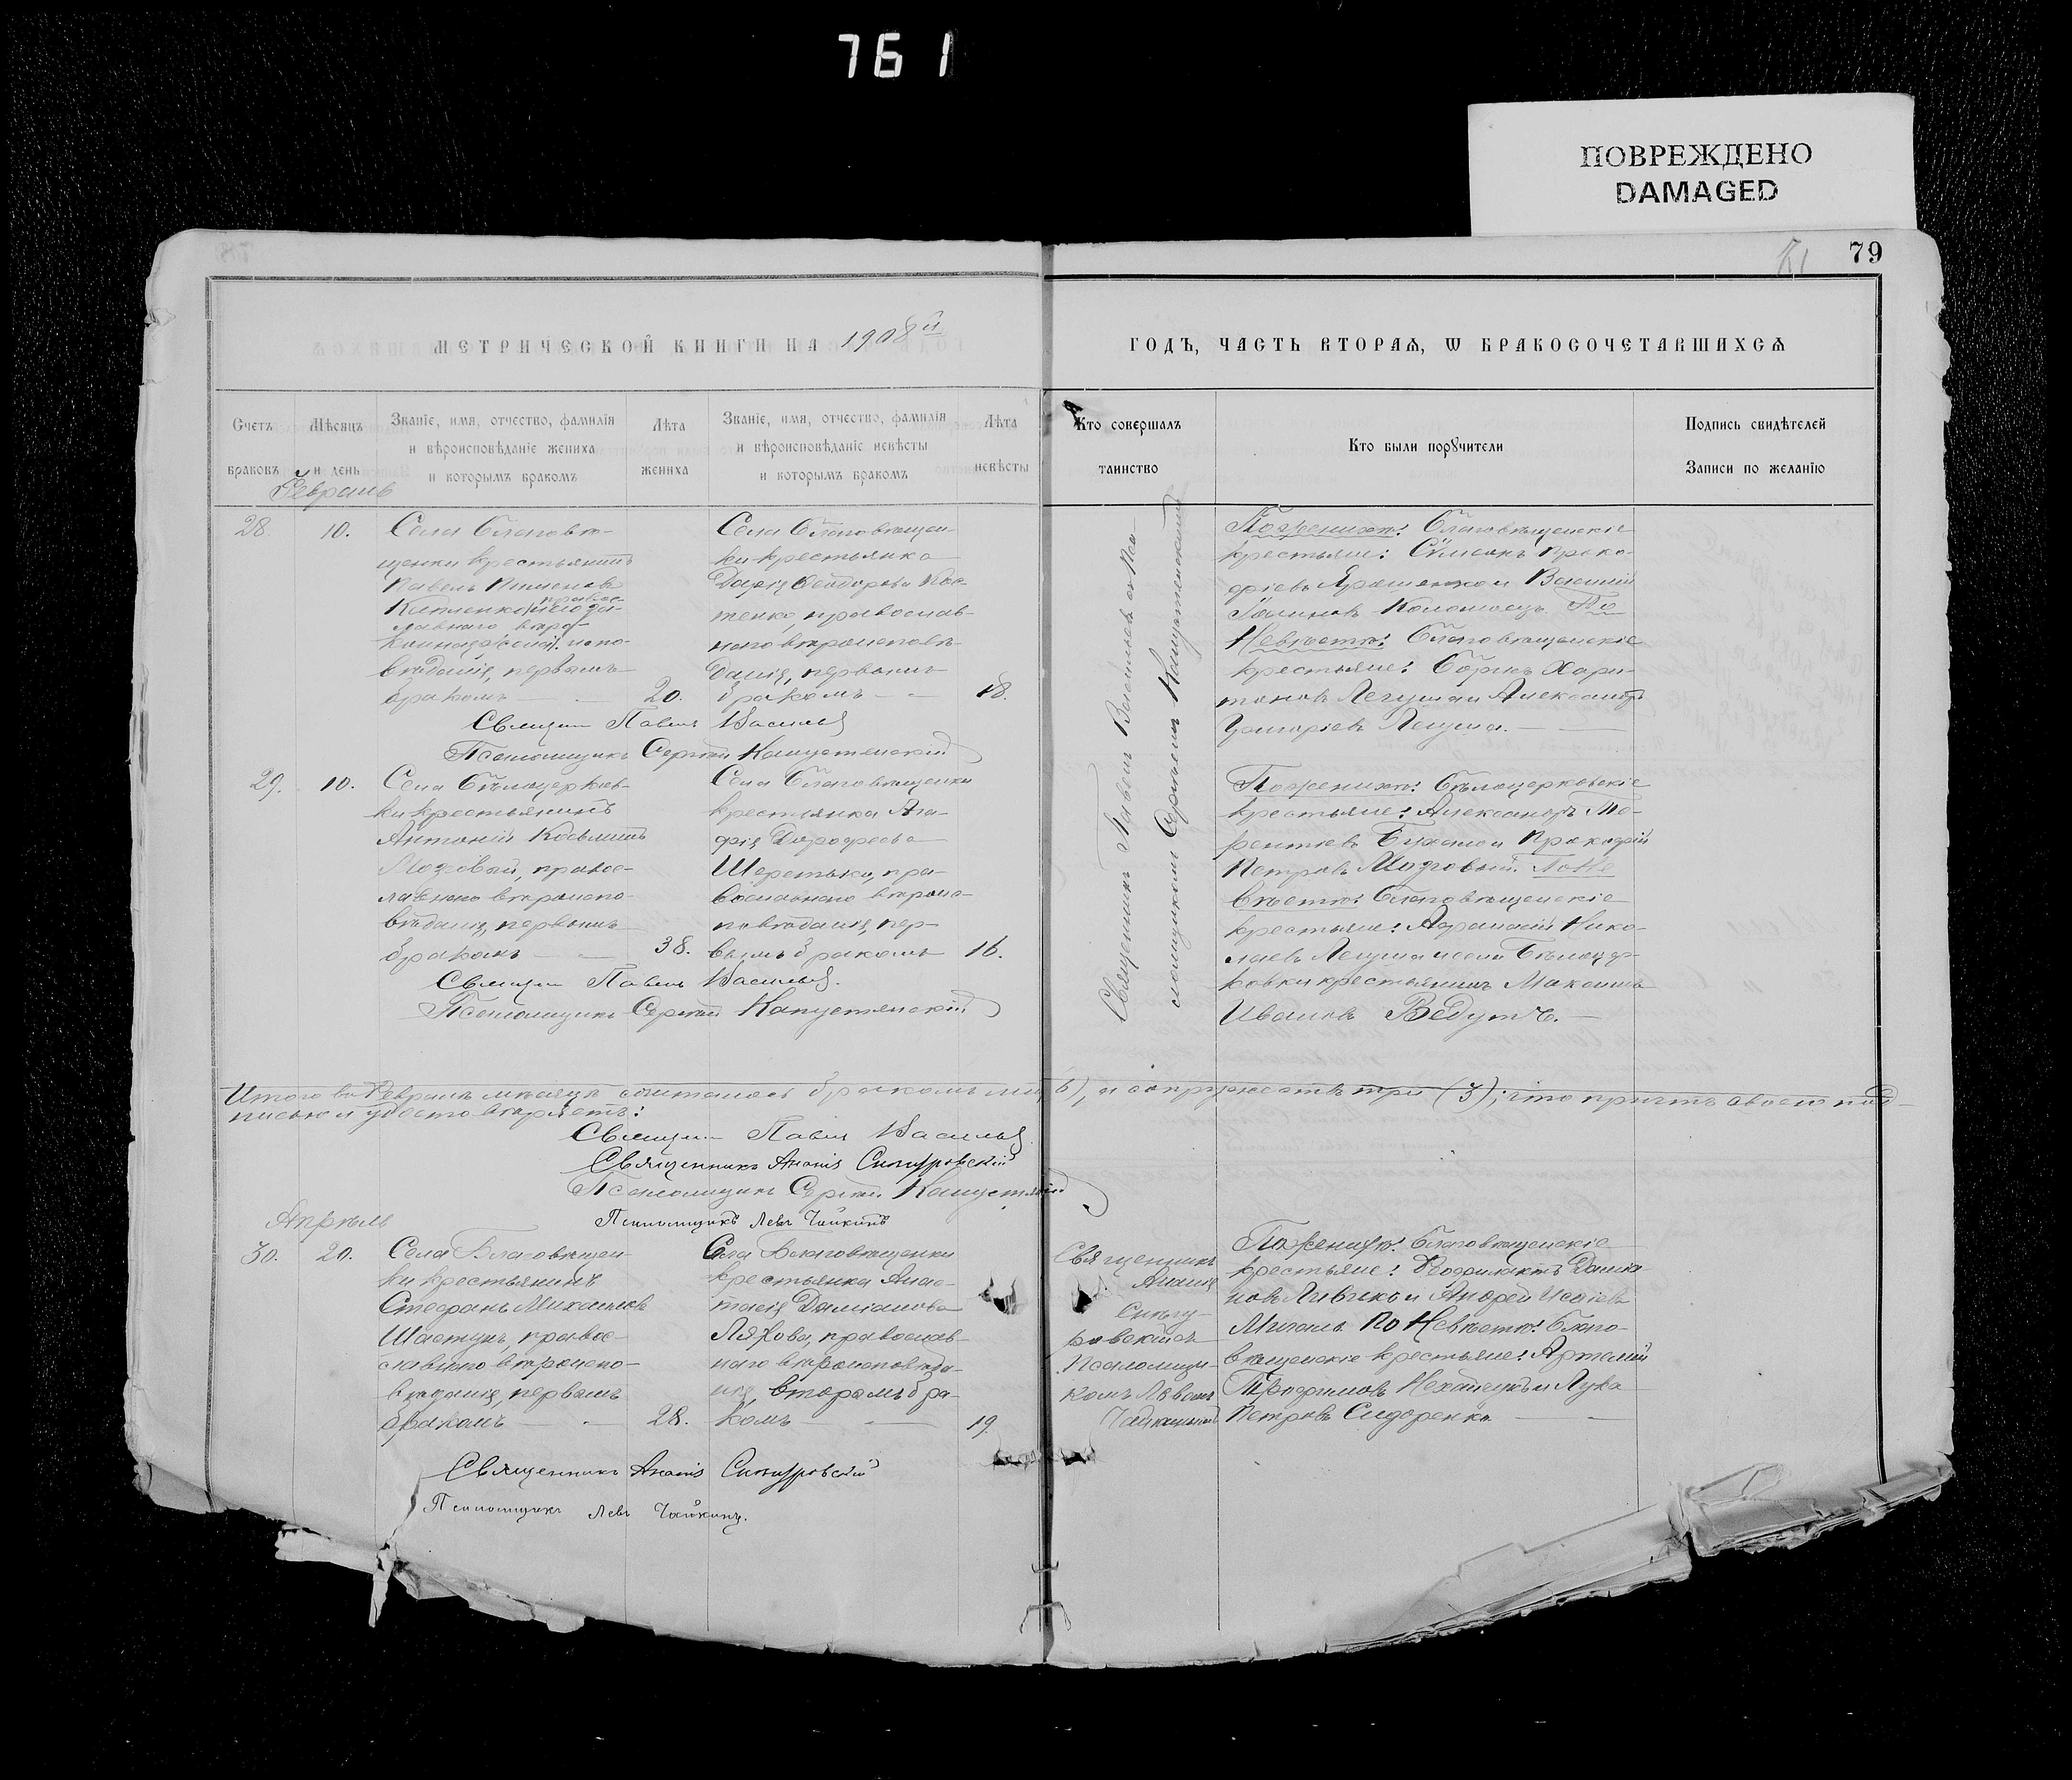 761
ПОВРЕЖДЕНО
DAMAGED
79
МЕТРИЧЕСКОЙ КНИГИ НА 1908й
ГОДЪ, ЧАСТЬ ВТОРАѦ, Ѡ БРАКОСОЧЕТАВШИХСѦ
Счетъ браковъ
Мѣсяцъ и день
Званіе, имя, отчество, фамилія
и вѣроисповѣданіе жениха
и которымъ бракомъ
Лѣта жениха
Званіе, имя, отчество, фамилія
и вѣроисповѣданіе невѣсты
и которымъ бракомъ
Лѣта невѣсты
Кто совершалъ таинство
Кто были порꙋчители
Подпись свидѣтелей
Записи по желанію
Февраль
28. 10.
Села Благовѣ-
щенки крестьянинъ
Павелъ Пименовъ
православнаго вѣро-
исповѣданія, первымъ
бракомъ 20.
Села Благовѣщен-
ки крестьянка
Дарія
тенко, православ-
наго вѣроисповѣ-
данія, первымъ
бракомъ 18.
Священникъ Павелъ Васильевъ со пса-
ломщикомъ Сергѣемъ Капустянскимъ
По женихѣ: Благовѣщенскіе
крестьяне: Симеонъ Проко-
фіевъ Ярошенко и Василій
Коломоецъ. По
Невѣстѣ: Благовѣщенскіе
крестьяне: Борисъ Хари-
тоновъ Легуша и Александръ
Григоріевъ Легуша.
Священ. Павелъ Васильевъ
Псаломщикъ Сергѣй Капустянскій
29. 10.
Села Бѣлоцерков-
ки крестьянинъ
Антоній Косьминъ
Мозговый, правос-
лавнаго вѣроиспо-
вѣданія, первымъ
бракомъ 38.
Села Благовѣщенки
крестьянка Ага-
фія Дорофеева
Шеретько, пра-
вославнаго вѣроис-
повѣданія, пер-
вымъ бракомъ 16.
По женихѣ: Бѣлоцерковскіе
крестьяне: Александръ
и Прокофій
Петровъ Мозговый. По Не
вѣстѣ: Благовѣщенскіе
крестьяне: Афанасій Нико-
лаевъ Легуша и села Бѣлоцер-
ковки крестьянинъ Максимъ
Ивановъ Ведутъ.
Священ. Павелъ Васильевъ.
Псаломщикъ Сергѣй Капустянскій
Итого въ Февралѣ мѣсяцѣ три (3); что причтъ своею под-
писью и удостовѣряетъ:
Священ. Павелъ Васильевъ
Священникъ Ананія Снѣгуровскій
Псаломщикъ Сергѣй Капустянскій
Псаломщикъ Левъ Чайкинъ
Апрѣль
30. 20.
Села Благовѣщен-
ки крестьянинъ
Стефанъ Михаиловъ
Шастунъ, правос-
лавнаго вѣроиспо-
вѣданія, первымъ
бракомъ 28.
Села Благовѣщенки
крестьянка Анас-
тасія Даміанова
Ляхова, православ-
наго вѣроисповѣда-
нія, вторымъ бра-
комъ 19.
Священникъ
Ананія
Снѣгу-
ровскій съ
псаломщи-
комъ Львомъ
Чайкинымъ
По женихѣ: Благовѣщенскіе
крестьяне: Ѳеофилактъ
и Андрей Исаіевъ
По Невѣстѣ: Благо-
вѣщенскіе крестьяне: Артемій
Трофимовъ Нехайчукъ и Лука
Петровъ Сидоренко.
Священникъ Ананія Снѣгуровскій
Псаломщикъ Левъ Чайкинъ.